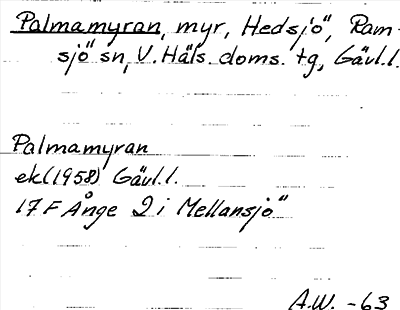 Palmamyran, myr, Hedsjö, Ram-
sjö sn, V. Häls. doms. tg, Gävl.l.
Palmamyran
ek(1958) Gävl.l.
17F Ånge 2 i Mellansjö
A.W. -63